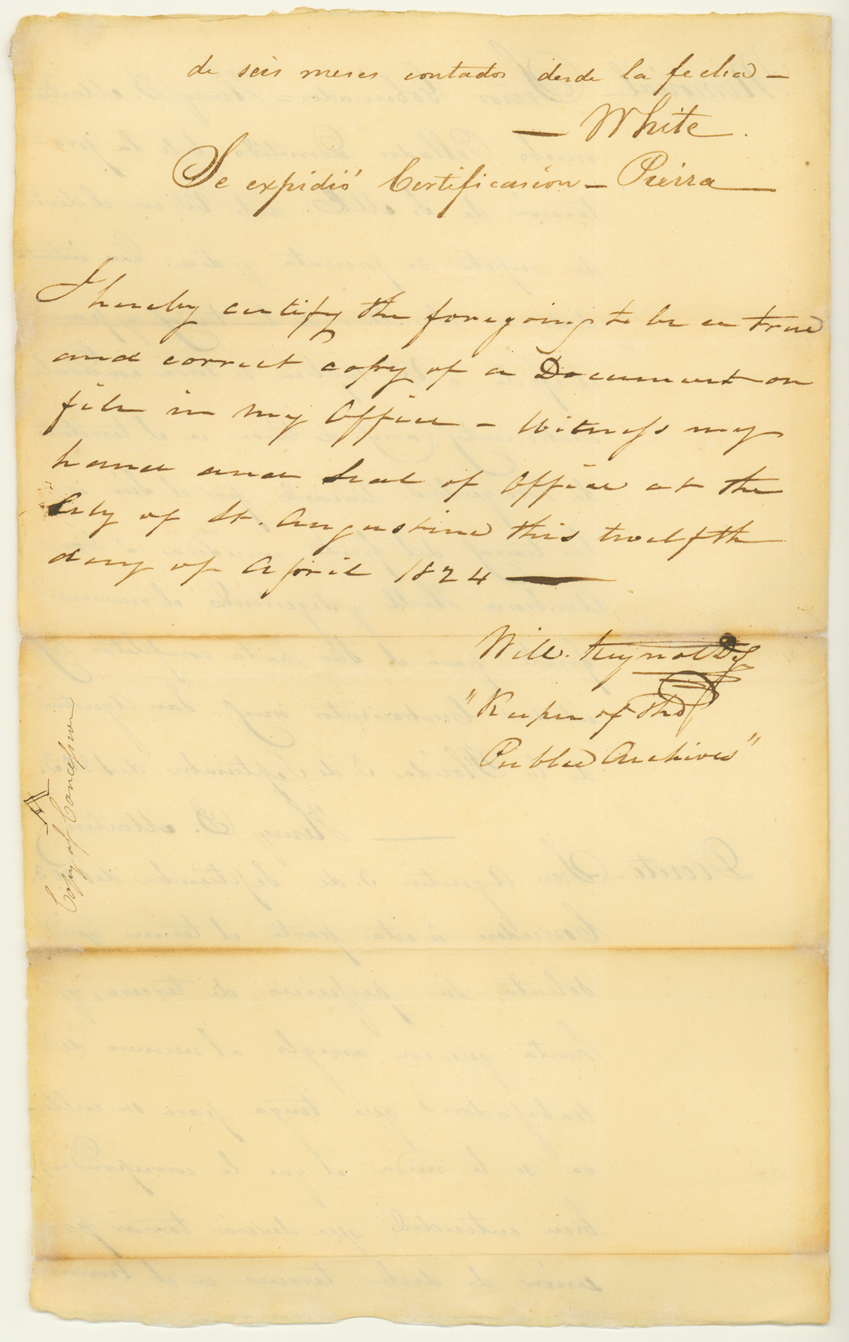 de seis meses contados desde la fecha —
— White.
Se expidió Certificasion — Pierra
I hereby certify the foregoing to be a true
and correct copy of a Document on
file in my Office – Witness my
hand and Seal of Office at the
City of St. Augustine this twelfth
day of April 1824 —
Will. Reynolds
"Keeper of the
Public Archives"
Copy of Concession